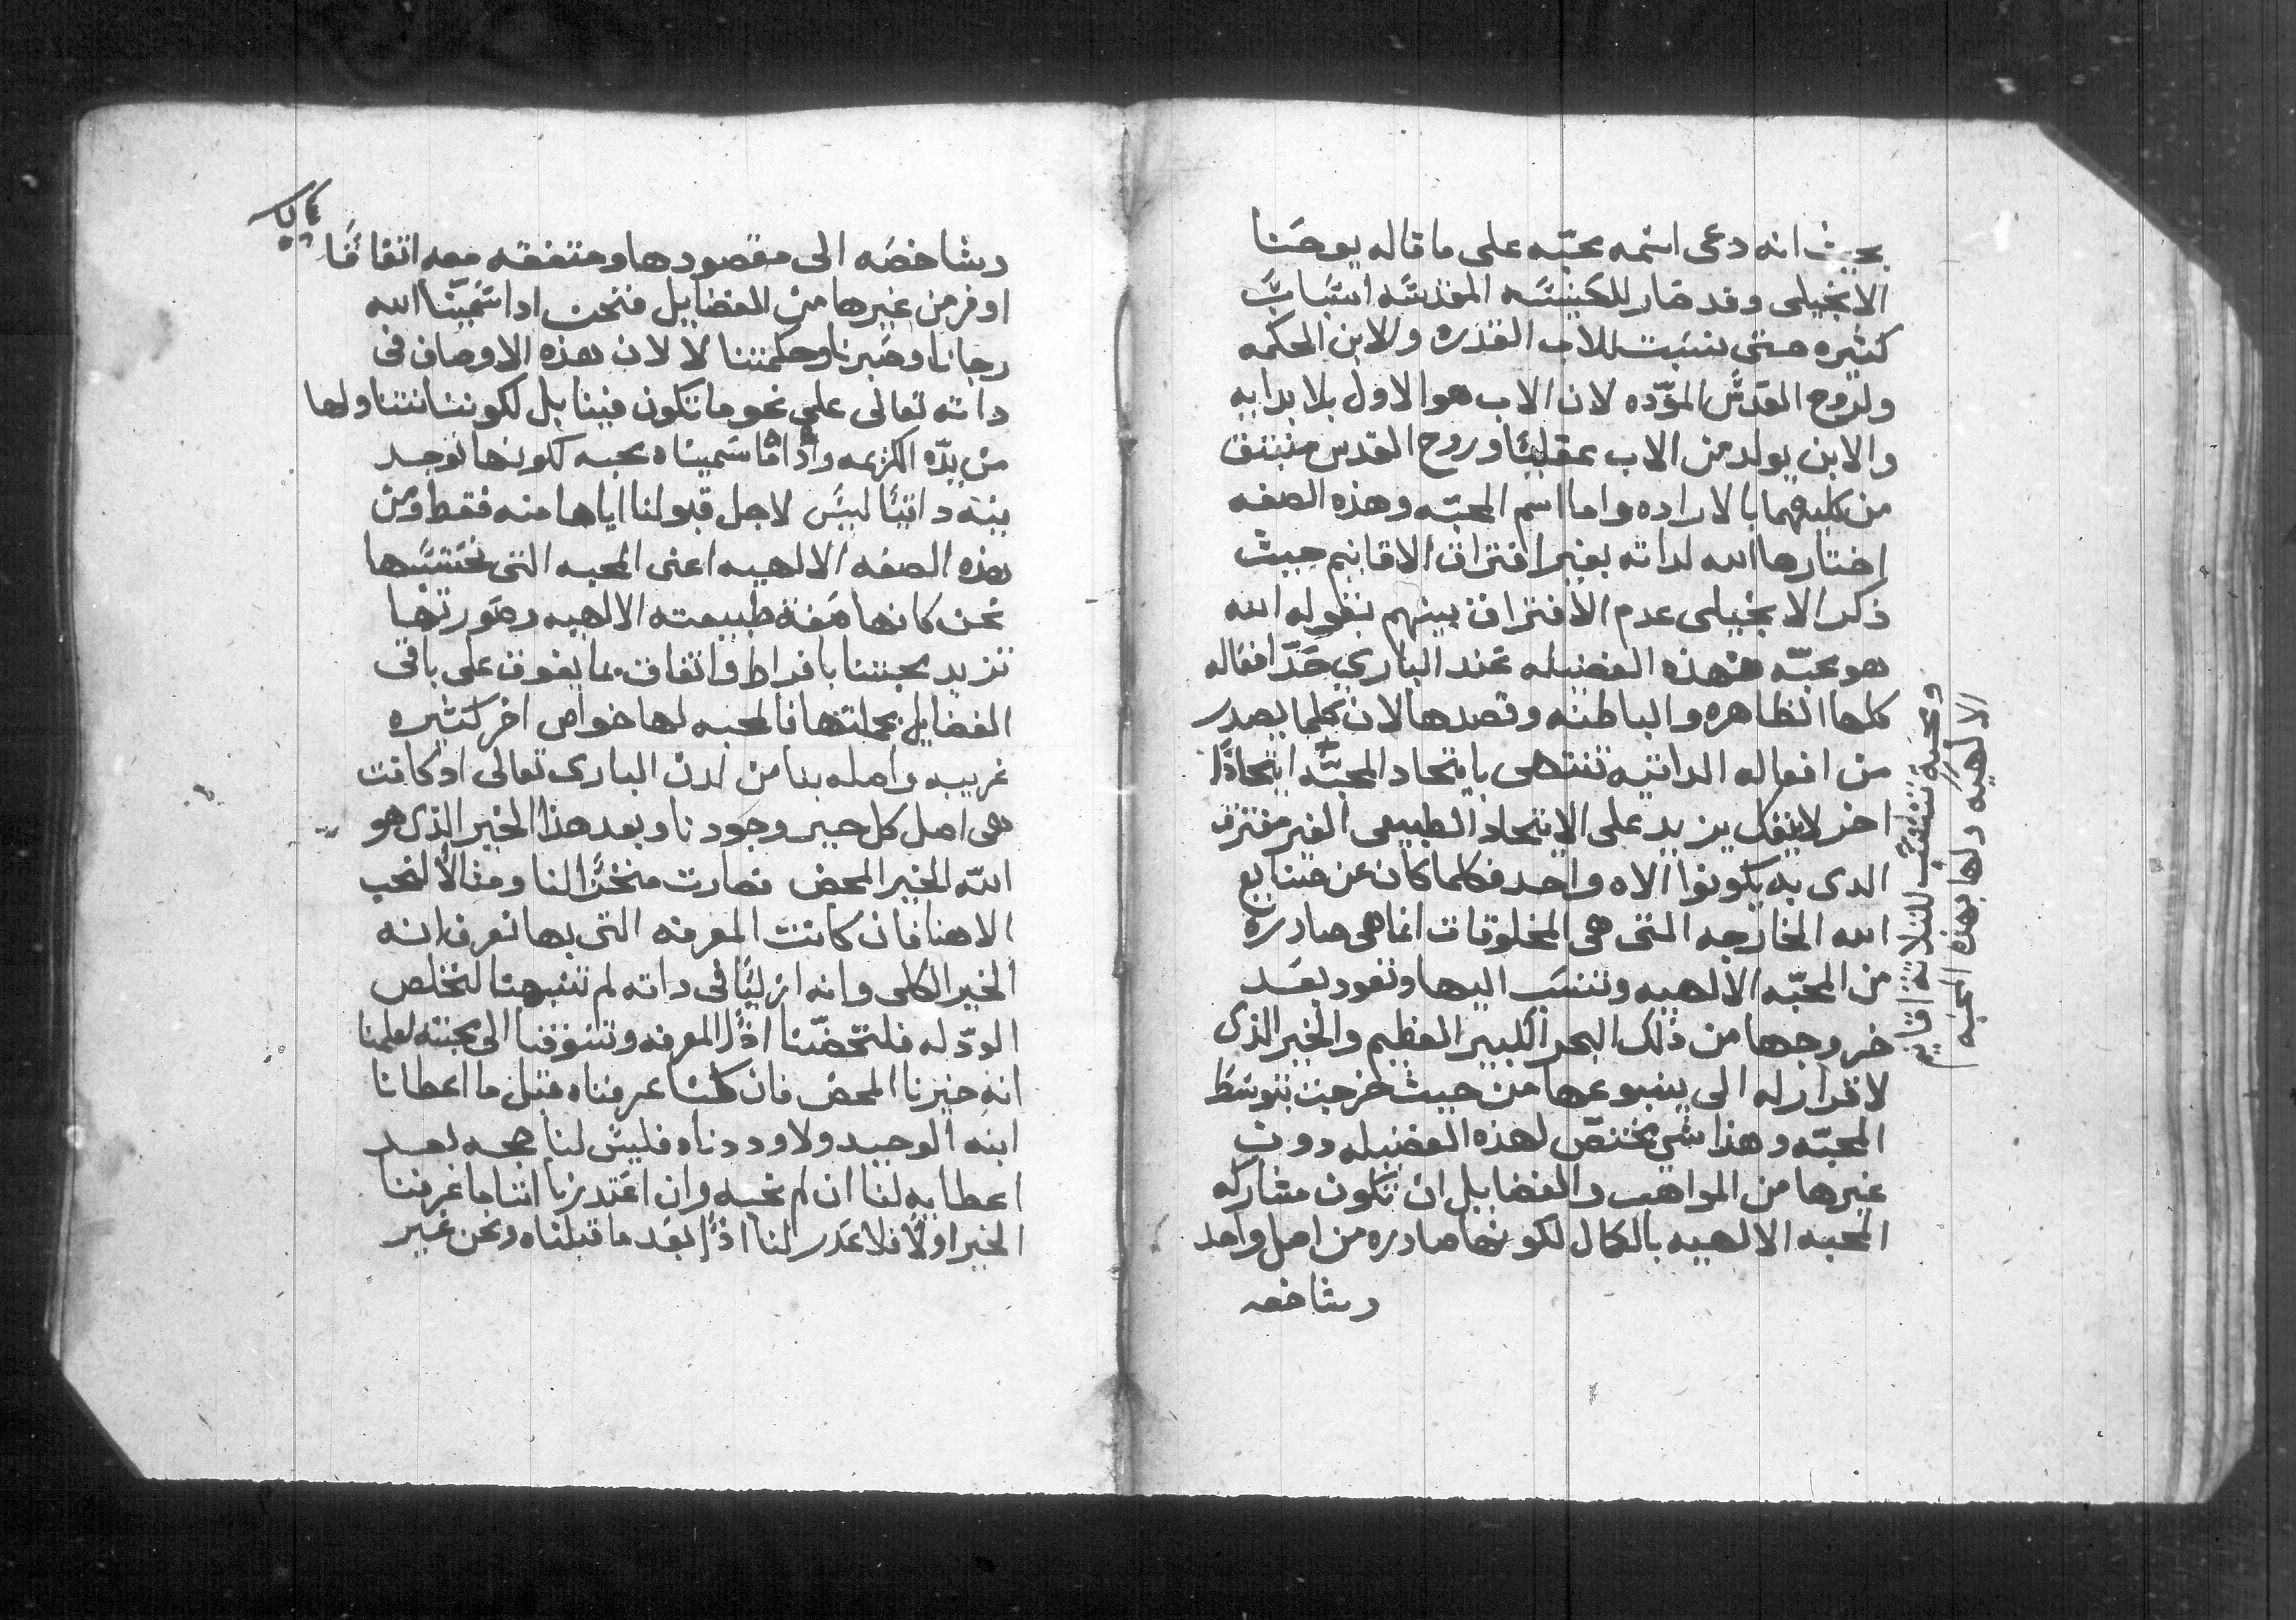 بحيث انه دعى اسمه محبّه على ما قاله يوحنا
الانجيلى وقد صار للكنيسه المقدسه اسباب
كثيره حتى نسبت للاب القدره وللابن الحكمه
ولروح القدس المودّه لان الاب هو الاول بلا بدايه
والابن يولد من الاب عقليًا وروح القدس منبثق
من كليهما بالاراده واما اسم المحبّه وهذه الصفه
اختارها الله لداته بغير افتراق الاقانيم حيث
ذكر الانجيلى عدم الافتراق بينهم بقوله الله
هو محبّه فهذه الفضيله عند البارى حَدّ افعاله
كلها الظاهره والباطنه وقصدها لان كلما يصدر
من افعاله الداتيه تنتهى بايتحاد المحبّه ايتحادًا
اخر لا يقل يزيد على الايتحاد الطبيعى الغير مفترق
الدى به يكونوا الاه واحد فكلما كان عن صنايع
الله الخارجه التى هى المخلوقات انما هى صادره
من المحبّه الالهيه وتنسب اليها وتعود بعد
خروجها من ذلك البحر الكبير العظيم والخير الذى
لا قرار له الى ينبوعها من حيث خرجت بتوسّط
المحبّه وهذا شى مختصّ لهذه الفضيله دون
غيرها من المواهب والفضايل ان تكون مشاركه
المحبه الالهيه بالكمال لكونها صادره من اصل واحد
وشاخصه
ومحبة تنتسب للثلاثة اقانيم
الالهيه ولها بهذه المحبه
وشاخصه الى مقصودها ومتفقه معه اتفاقًا
اوفر من غيرها من الفضايل فنحن اذا سَمّينا الله
رجانا وصَبرنا وحكمتنا لا لان هذه الاوصاف فى
داته تعالى على نحو ما تكون فينا بل لكوننا نتناولها
من يدّه الكريمه واذا ما سَميناه محبه لكونها توجد
فيه داتيًا ليس لاجل قبولنا اياها منه فقط ومن
هذه الصفه الالهيه اعنى المحبه التى نحتسبها
نحن كانها صفة طبيعته الالهيه وصورتها
تزيد محبتنا بافراط واتفاق مما يفوق على باقى
الفضايل بجملتها فالمحبه لها خواص اخر كثيره
غريبه واصله بنا من لدن البارى تعالى اد كانت
هى اصل كل خير وجودنا وبعد هذا الخير الذى هو
الله الخير المحض فصارت لنا ومثالًا لنحب
الاهنا فان كانت المعرفه التى بها نعرف انه
الخير الكلى وانه ازليًا فى داته لم تنبهنا لنخلص
الودّ له فلتحضّنا اذًا المعرفه وتشوقنا الى محبته لعلمنا
انه خيرنا المحض فان كنّا عرفناه قبل ما اعطانا
ابنه الوحيد ولا وددناه فليس لنا حجه بعد
اعطايه لنا ان لم نحبه وان اعتدرنا اننا ما عرفنا
الخير اولًا فلا عَدر لنا اذًا بعد ما قبلناه ونحن غير